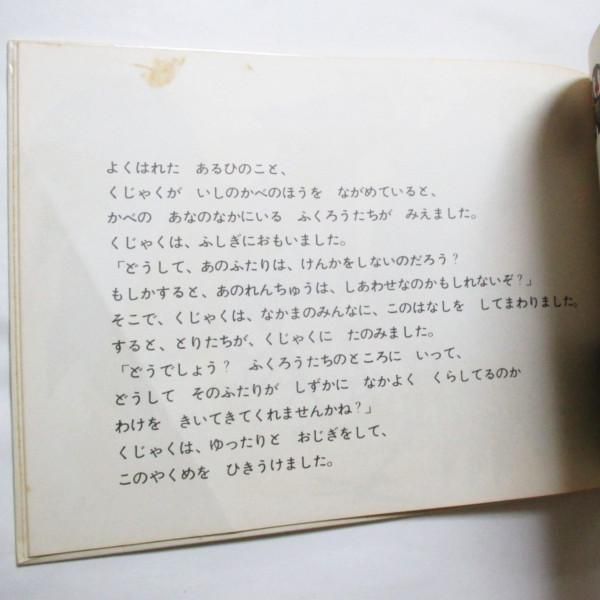 よくはれた　あるひのこと、
くじゃくが　いしのかべのほうを　ながめていると、
かべの　あなのなかにいる　ふくろうたちが　みえました。
くじゃくは、ふしぎにおもいました。
「どうして、あのふたりは、けんかをしないのだろう？
もしかすると、あのれんちゅうは、しあわせなのかもしれないぞ？」
そこで、くじゃくは、なかまのみんなに、このはなしを　してまわりました。
すると、とりたちが、くじゃくに　たのみました。
「どうでしょう？　ふくろうたちのところに　いって、
どうして　そのふたりが　しずかに　なかよく　くらしてるのか
わけを　きいてきてくれませんかね？」
くじゃくは、ゆったりと　おじぎをして、
このやくめを　ひきうけました。